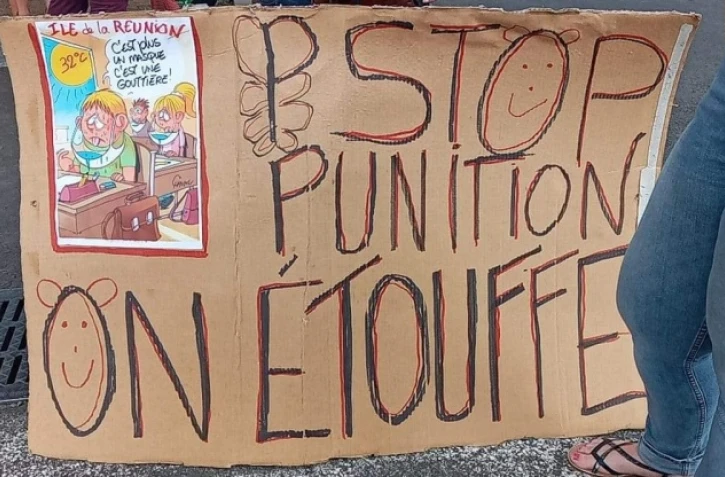 ILE de la REUNION
32°C
C'EST PLUS
UN MASQUE
C'EST UNE
GOUTTIÈRE!
STOP
PUNITION
ON ÉTOUFFE